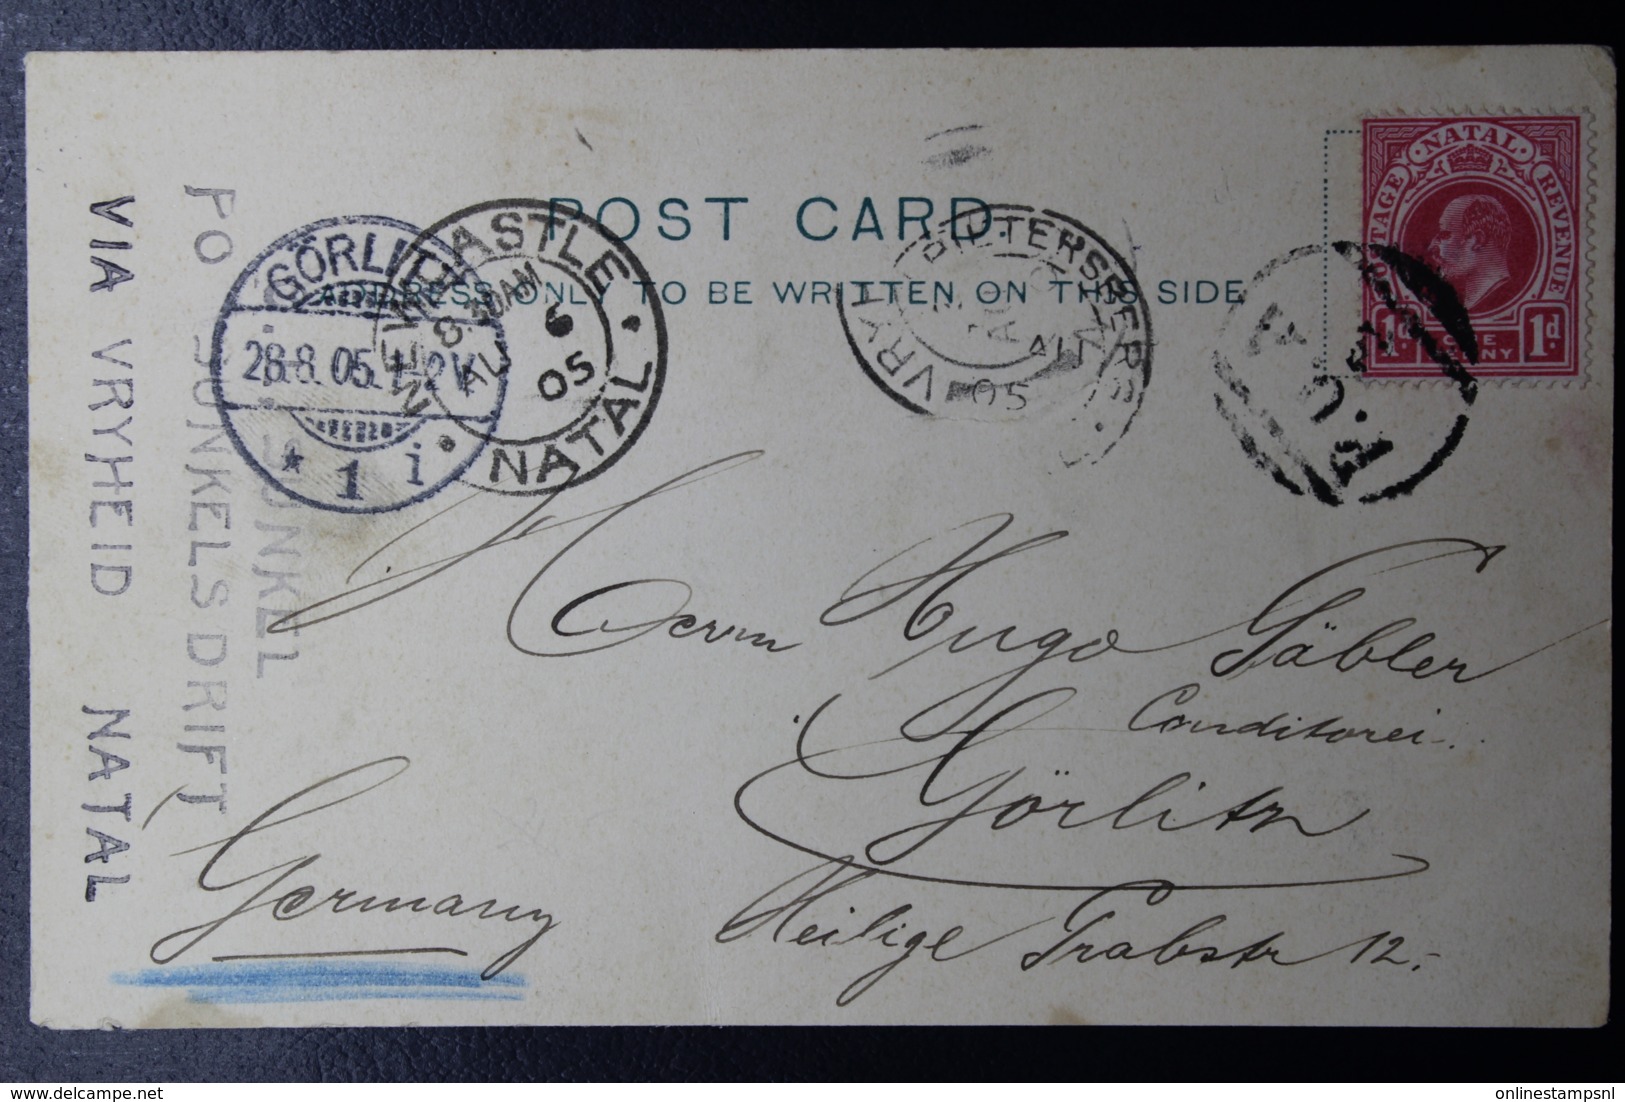 POST CARD.
ADDRESS ONLY TO BE WRITTEN ON THIS SIDE
NATAL
POSTAGE
REVENUE
1d
ONE PENNY
1d
GÖRLITZ
28.8.05.1-2V.
* 1 i
NEWCASTLE
8.30AM
AU 6
05
NATAL
PIETERSBERG
VRYH
AU
05
P.O.A
SUNKEL
PO SUNKELS DRIFT
VIA VRYHEID NATAL
Herrn Hugo Gäbler
Conditorei.
Görlitz
Heilige Grabstr 12.-
Germany
onlinestampsnl